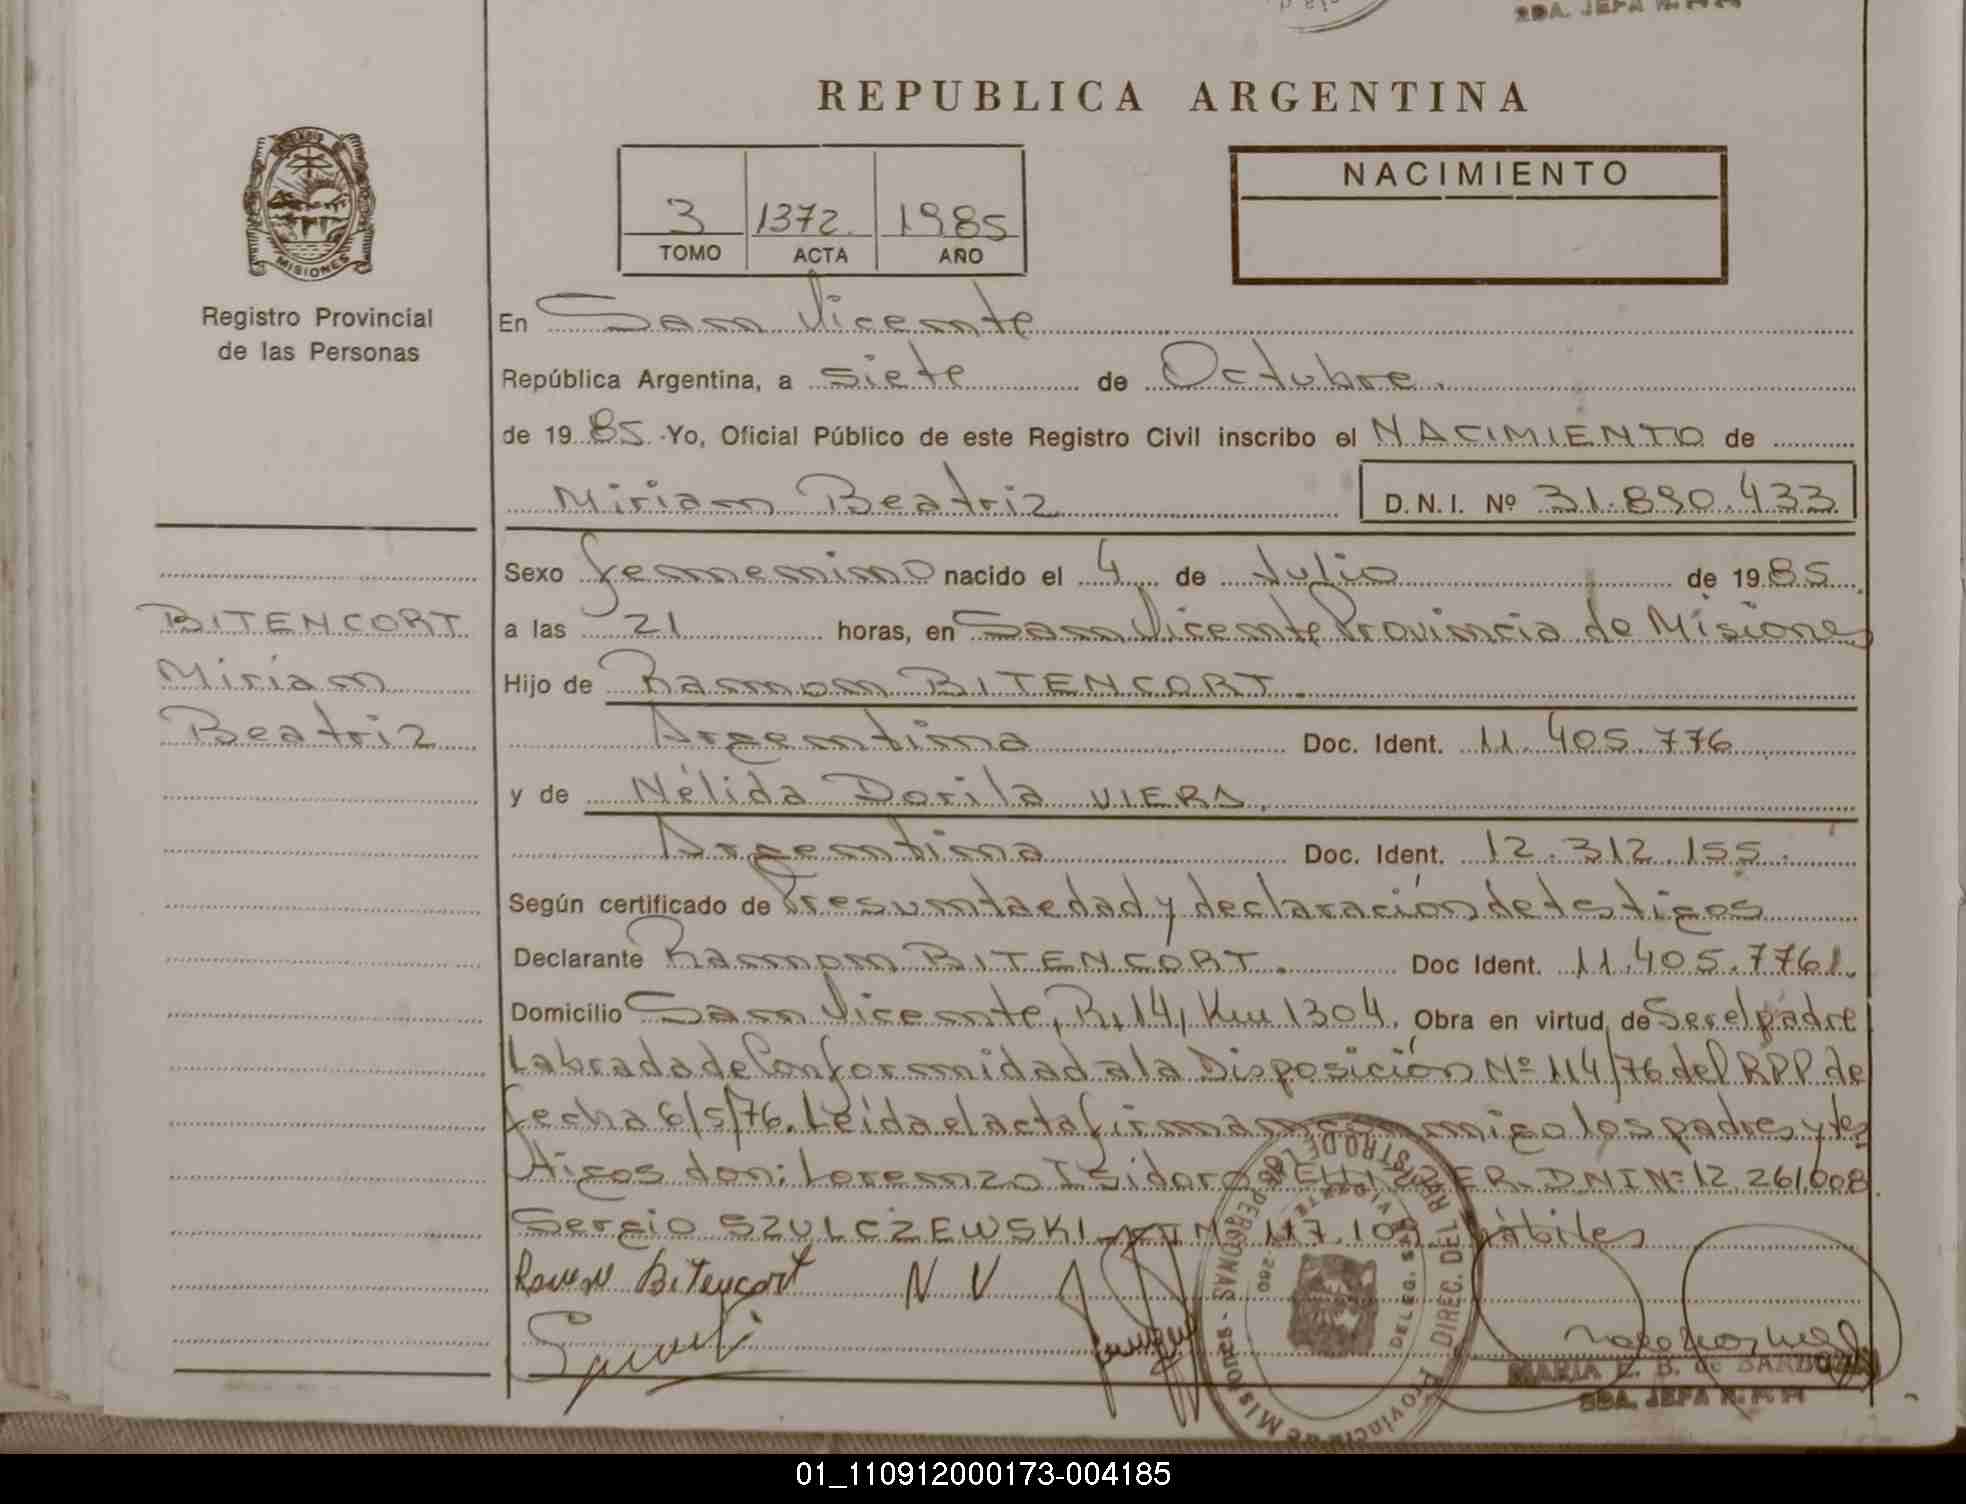 SDA. JEFA R.
REPUBLICA ARGENTINA
MISIONES
Registro Provincial
de las Personas
NACIMIENTO
3 1372. 1985
TOMO ACTA AÑO
En San Vicente
República Argentina, a siete de Octubre.
de 1985. Yo, Oficial Público de este Registro Civil inscribo el NACIMIENTO de
Miriam Beatriz D.N.I. Nº 31.890.433
Sexo femenino nacido el 4 de Julio de 1985.
a las 21 horas, en San Vicente Provincia de Misiones
BITENCORT
Miriam
Beatriz
Hijo de Ramon BITENCORT.
Argentina Doc. Ident. 11.405.776
y de Nélida Dorila VIERA.
Argentina Doc. Ident. 12.312.155.
Según certificado de Presunta edad y declaración de testigos
Declarante Ramon BITENCORT. Doc Ident. 11.405.776
Domicilio San Vicente, R.14, Km 1304. Obra en virtud de Ser el padre
Labrada de Conformidad a la Disposición Nº 114/76 del RPP de
fecha 6/5/76. Leída el acta firman conmigo los padres y tes
tigos don: Lorenzo Isidoro DNI Nº 12.261.008
Sergio SZULCZEWSKI 117.109 hábiles
Ramon Bitencort N V
DIREC. DEL REGISTRO DE LAS PERSONAS - Provincia de Misiones
MARIA E. B. de BARBOZA
SDA. JEFA R.
01_110912000173-004185